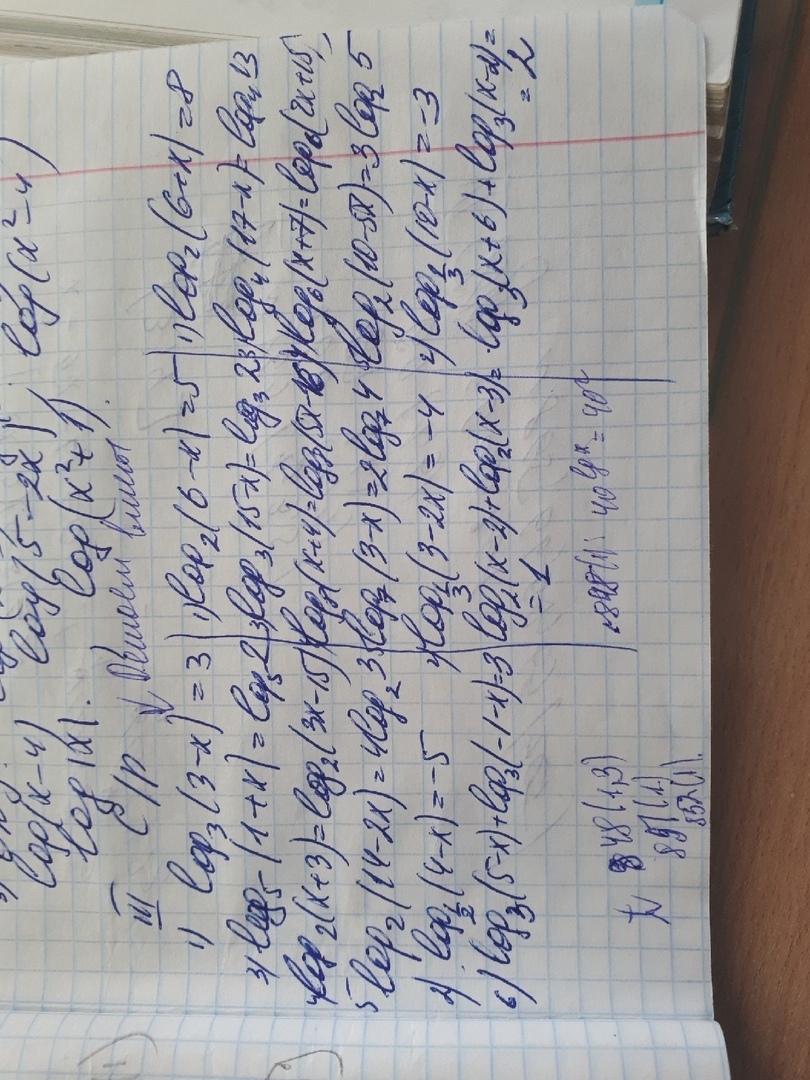 log(x-4) log(5-2x) log(x²-4)
log|x|. log(x²+1).
III С/р ↓
1) log₃(3-x)=3 | 1) log₂(6-x)=5 | 1) log₂(6+x)=8
3) log₅(1+x)=log₅2 | 3) log₃(15-x)=log₃2 | 3) log₄(17-x)=log₄13
4) log₂(x+3)=log₂(3x-15) | log₇(x+4)=log₇(5x-16) | 4) log₆(x+7)=log₆(7x+15)
5 log₂(14-2x)=4log₂3 | 5 log₇(3-x)=2log₇4 | 5 log₂(10-5x)=3log₂5
2) log_{1/2}(4-x)=-5 | 2) log_{1/3}(3-2x)=-4 | 2) log_{1/3}(10-x)=-3
6) log₃(5-x)+log₃(-1-x)=3 | log₂(x-2)+log₂(x-3)= | log₃(x+6)+log₃(x-2)=
=1 | =2
848(1) 40^{lg x}=40²
848(1,3)
851(1)
852(1).